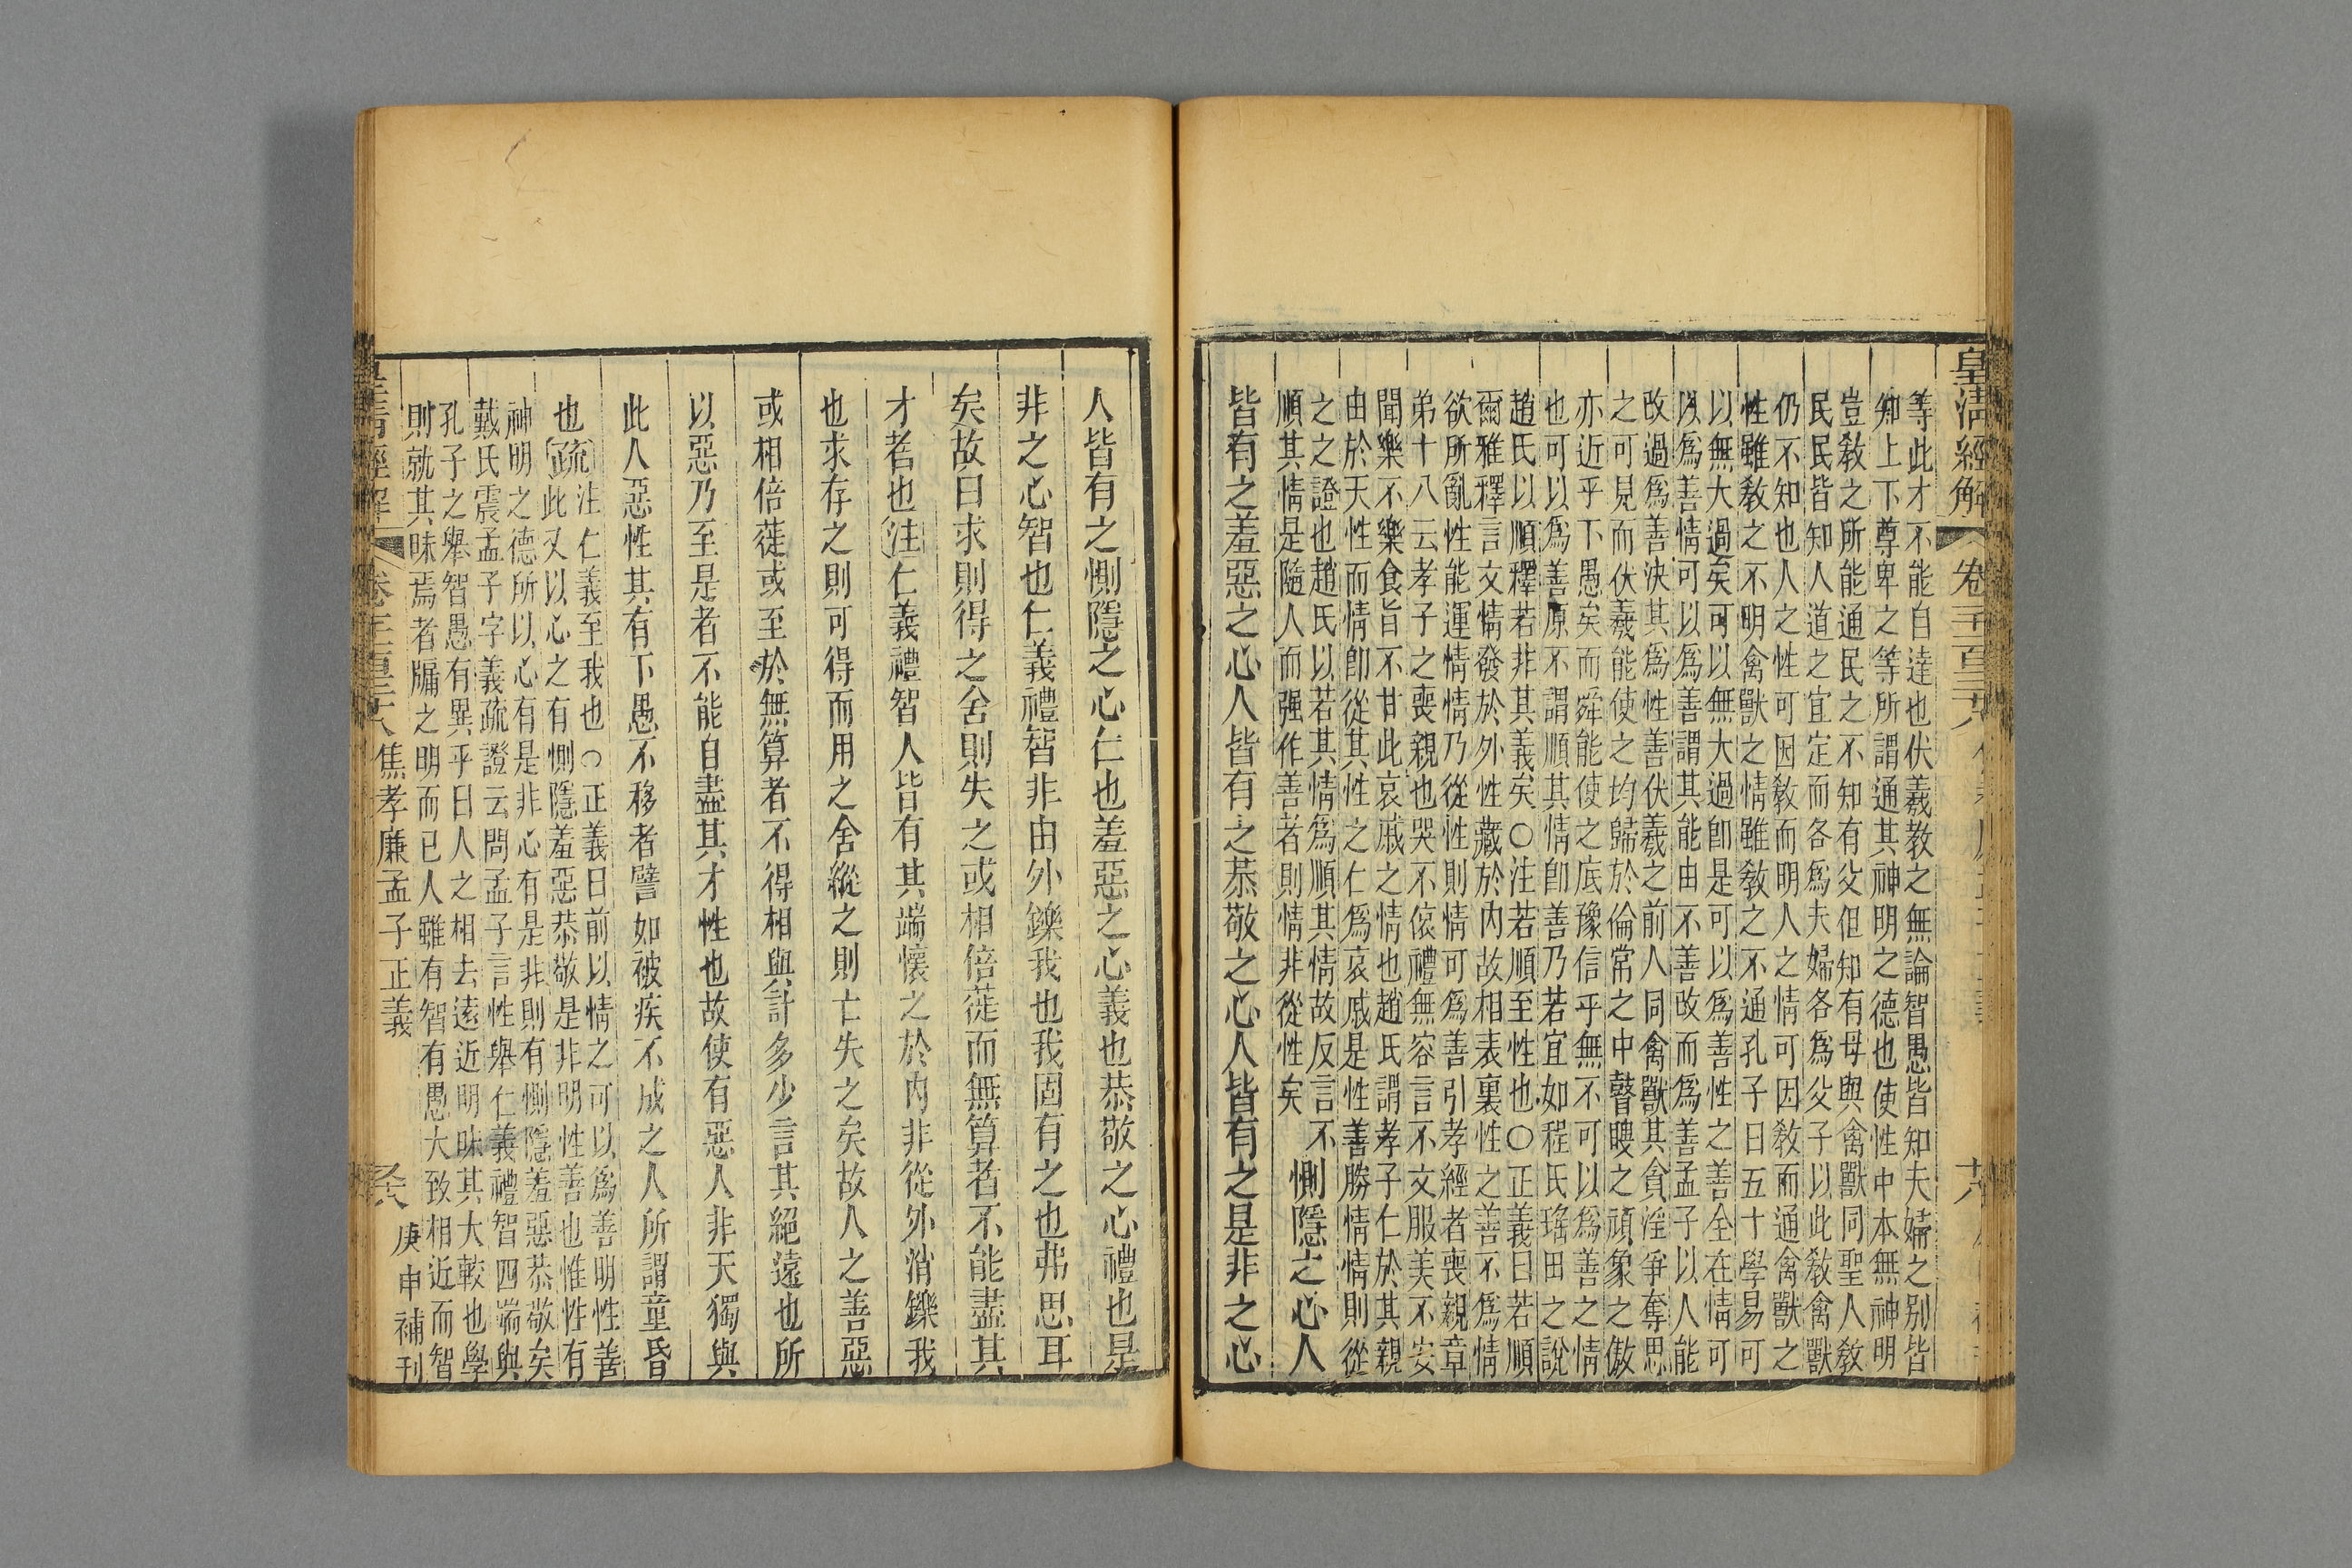 皇清經解
卷
等此才不能自達也伏羲教之無論智愚皆知夫婦之別皆
知上下尊卑之等所謂通其神明之德也使性中本無神明
豈教之所能通民之不知有父但知有母與禽獸同聖人教
民民皆知人道之宜定而各爲夫婦各爲父子以此教禽獸
仍不知也人之性可因教而明人之情可因教而通禽獸之
性雖教之不明禽獸之情雖教之不通孔子曰五十學易可
以無大過矣可以無大過卽是可以爲善性之善全在情可
以爲善情可以爲善謂其能由不善改而爲善孟子以人能
改過爲善決其爲性善伏羲之前人同禽獸其貪淫爭奪思
之可見而伏羲能使之均歸於倫常之中瞽瞍之頑象之傲
亦近乎下愚矣而舜能使之底豫信乎無不可以爲善之情
也可以爲善原不謂順其情卽善乃若宜如程氏瑤田之說
趙氏以順釋若非其義矣○注若順至性也○正義曰若順
爾雅釋言文情發於外性藏於內故相表裏性之善不爲情
欲所亂性能運情情乃從性則情可爲善引孝經者喪親章
弟十八云孝子之喪親也哭不偯禮無容言不文服美不安
聞樂不樂食旨不甘此哀戚之情也趙氏謂孝子仁於其親
由於天性而情卽從其性之仁爲哀戚是性善勝情情則從
之之證也趙氏以若其情爲順其情故反言不
順其情是隨人而强作善者則情非從性矣
惻隱之心人
皆有之羞惡之心人皆有之恭敬之心人皆有之是非之心
人皆有之惻隱之心仁也羞惡之心義也恭敬之心禮也是
非之心智也仁義禮智非由外鑠我也我固有之也弗思耳
矣故曰求則得之舍則失之或相倍蓰而無算者不能盡其
才者也注仁義禮智人皆有其端懷之於內非從外消鑠我
也求存之則可得而用之舍縱之則亡失之矣故人之善惡
或相倍蓰或至於無算者不得相與計多少言其絕遠也所
以惡乃至是者不能自盡其才性也故使有惡人非天獨與
此人惡性其有下愚不移者譬如被疾不成之人所謂童昏
也疏
注仁義至我也○正義曰前以情之可以爲善明性善
此又以心之有惻隱羞惡恭敬是非明性善也惟性有
神明之德所以心有是非心有是非則有惻隱羞惡恭敬矣
戴氏震孟子字義疏證云問孟子言性舉仁義禮智四端與
孔子之舉智愚有異乎曰人之相去遠近明昧其大較也學
則就其昧焉者牖之明而已人雖有智有愚大致相近而智
焦孝廉孟子正義
庚申補刊